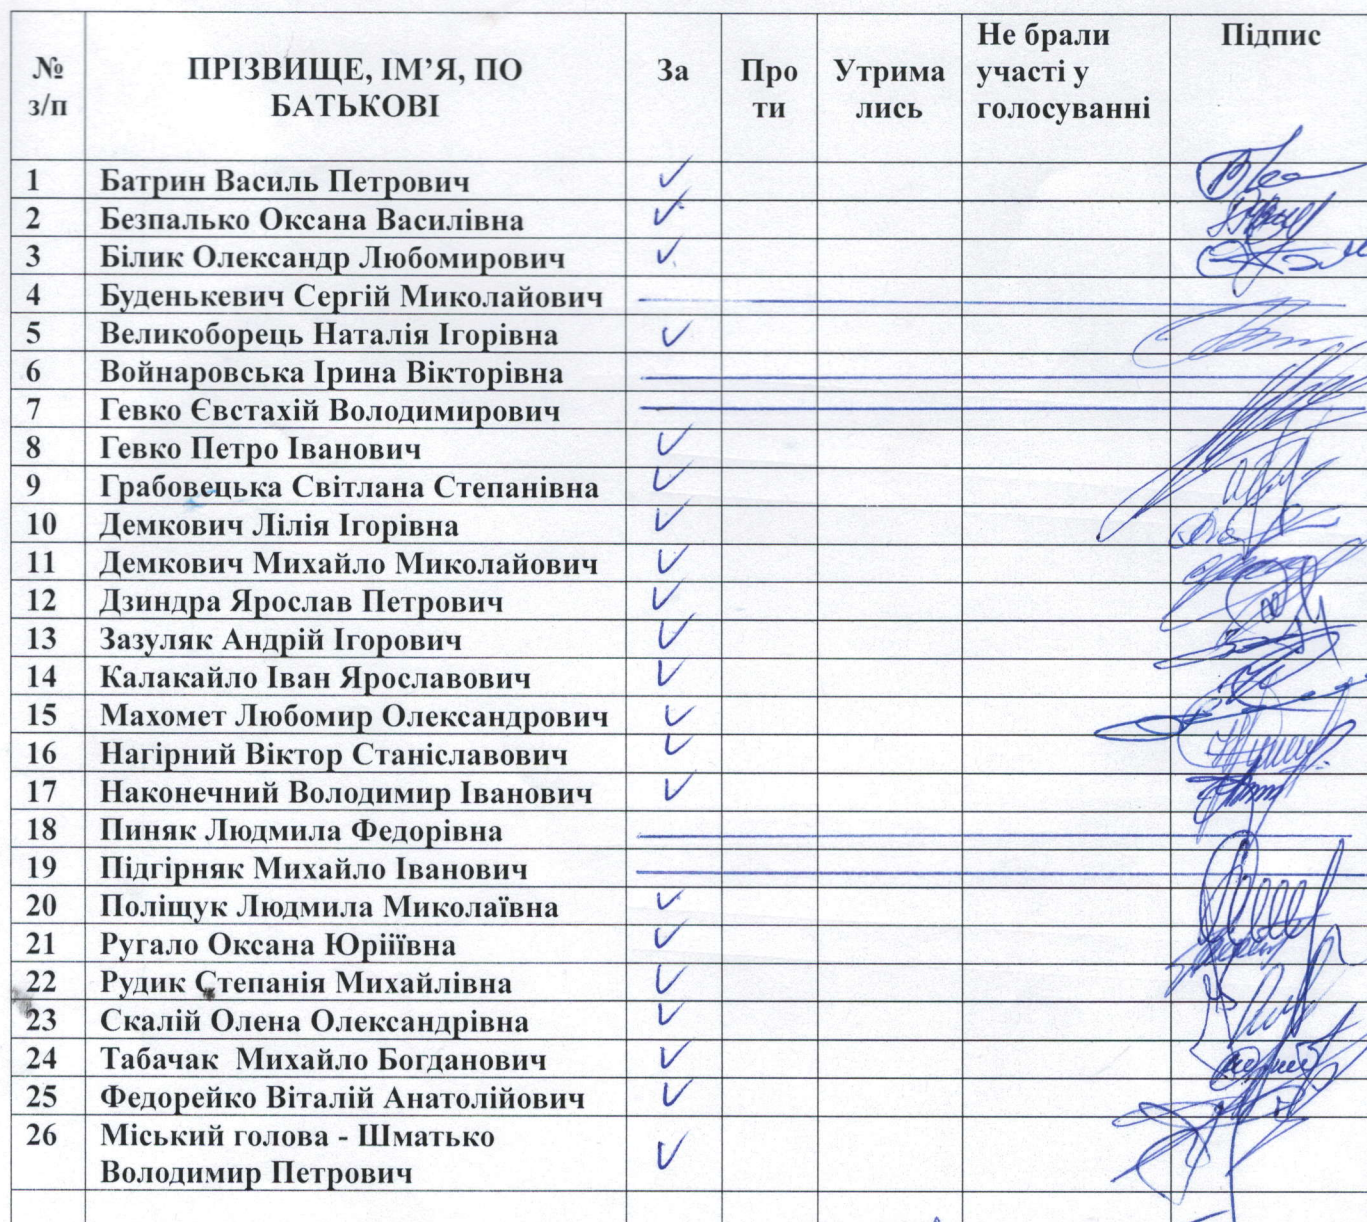 № з/п ПРІЗВИЩЕ, ІМ’Я, ПО БАТЬКОВІ За Про ти Утрима лись Не брали участі у голосуванні Підпис
1 Батрин Василь Петрович ✓
2 Безпалько Оксана Василівна ✓
3 Білик Олександр Любомирович ✓
4 Буденькевич Сергій Миколайович
5 Великоборець Наталія Ігорівна ✓
6 Войнаровська Ірина Вікторівна
7 Гевко Євстахій Володимирович
8 Гевко Петро Іванович ✓
9 Грабовецька Світлана Степанівна ✓
10 Демкович Лілія Ігорівна ✓
11 Демкович Михайло Миколайович ✓
12 Дзиндра Ярослав Петрович ✓
13 Зазуляк Андрій Ігорович ✓
14 Калакайло Іван Ярославович ✓
15 Махомет Любомир Олександрович ✓
16 Нагірний Віктор Станіславович ✓
17 Наконечний Володимир Іванович ✓
18 Пиняк Людмила Федорівна
19 Підгірняк Михайло Іванович
20 Поліщук Людмила Миколаївна ✓
21 Ругало Оксана Юріїївна ✓
22 Рудик Степанія Михайлівна ✓
23 Скалій Олена Олександрівна ✓
24 Табачак Михайло Богданович ✓
25 Федорейко Віталій Анатолійович ✓
26 Міський голова - Шматько
Володимир Петрович ✓